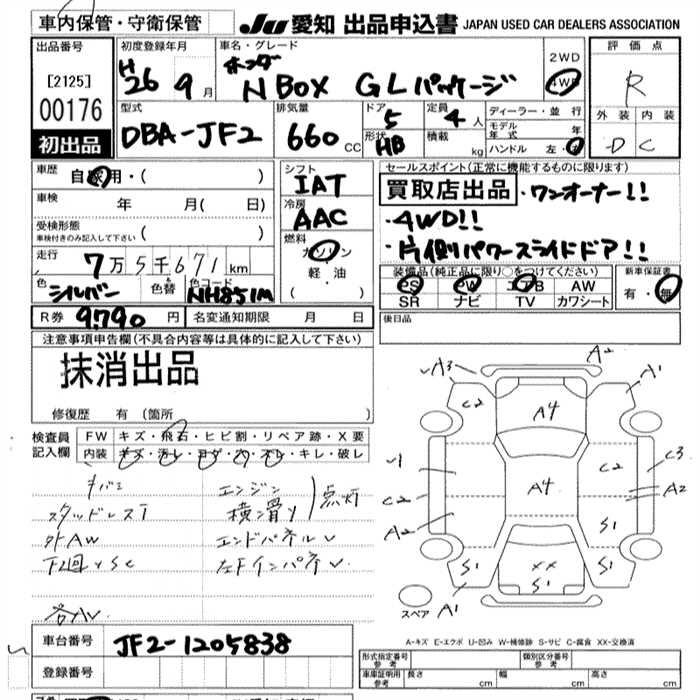 車内保管・守衛保管
JU 愛知 出品申込書 JAPAN USED CAR DEALERS ASSOCIATION
出品番号
[2125]
00176
初出品
初度登録年月
H 26 9月
車名・グレード
ホンダ N BOX GLパッケージ
2WD
4WD
評価点
R
外装 内装
D C
型式
DBA-JF2
排気量
660 CC
ドア 5
形状 HB
定員 4人
積載 kg
ディーラー・並行
モデル年式 年
ハンドル 左・右
車歴 自家用・( )
車検 年 月( 日)
受検形態
車検付きのみ記入して下さい ( )
走行 7万5千671km
色 シルバー
色替
色コード NH851M
R券 9790円
名変通知期限 月 日
シフト
IAT
冷房
AAC
燃料
ガソリン
軽・油
( )
セールスポイント(正常に機能するものに限ります)
買取店出品・ワンオーナー!!
・4WD!!
・片側パワースライドドア!!
装備品(純正品に限り○をつけてください)
PS PW エアB AW
SR ナビ TV カワシート
新車保証書
有・無
後日品
注意事項申告欄(不具合内容等は具体的に記入して下さい)
抹消出品
修復歴 有(箇所 )
検査員記入欄
FW キズ・飛石・ヒビ割・リペア跡・X要
内装 キズ・汚レ・コゲ・穴・スレ・キレ・破レ
スタッドレスT
外AW
エンジン
横滑り
点灯
エンドパネルU
左FインパネU
A3
A2
C2
A4
A1
C2
C3
A2
A4
C2
A2
S1
S1
XX
S1
S1
スペア
A1
A-キズ E-エクボ U-凹み W-補修跡 S-サビ C-腐食 XX-交換済
車台番号 JF2-1205838
登録番号
形式指定番号 参考
類別区分番号 参考
車庫証明用 参考 長さ cm 幅 cm 高さ cm